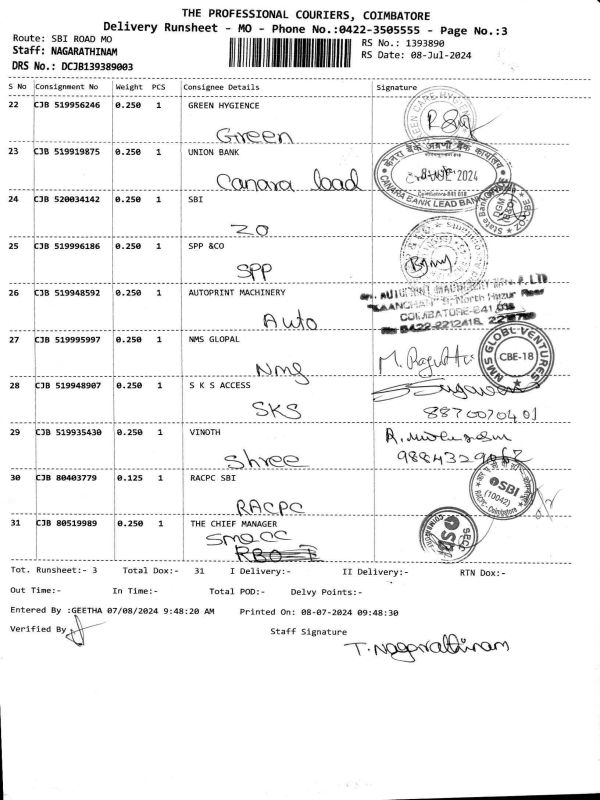 THE PROFESSIONAL COURIERS, COIMBATORE
Delivery Runsheet - MO - Phone No.:0422-3505555 - Page No.:3
Route: SBI ROAD MO
RS No.: 1393890
Staff: NAGARATHINAM
RS Date: 08-Jul-2024
DRS No.: DCJB139389003
S No Consignment No Weight PCS Consignee Details Signature
22 CJB 519956246 0.250 1 GREEN HYGIENCE
Green
23 CJB 519919875 0.250 1 UNION BANK
Canara load
CANARA BANK LEAD BANK
24 CJB 520034142 0.250 1 SBI
ZO
25 CJB 519996186 0.250 1 SPP &CO
SPP
26 CJB 519948592 0.250 1 AUTOPRINT MACHINERY
Auto
COIMBATORE-641 018
27 CJB 519995997 0.250 1 NMS GLOPAL
Nmg
NMS GLOBL VENTURES
CBE-18
28 CJB 519948907 0.250 1 S K S ACCESS
SKS
8870070401
29 CJB 519935430 0.250 1 VINOTH
Shree
30 CJB 80403779 0.125 1 RACPC SBI
RACPC
SBI
(10042)
RACPC - Coimbatore
31 CJB 80519989 0.250 1 THE CHIEF MANAGER
SMECC
RBO
Tot. Runsheet:- 3 Total Dox:- 31 I Delivery:- II Delivery:- RTN Dox:-
Out Time:- In Time:- Total POD:- Delvy Points:-
Entered By :GEETHA 07/08/2024 9:48:20 AM Printed On: 08-07-2024 09:48:30
Verified By
Staff Signature
T. Nagarathinam